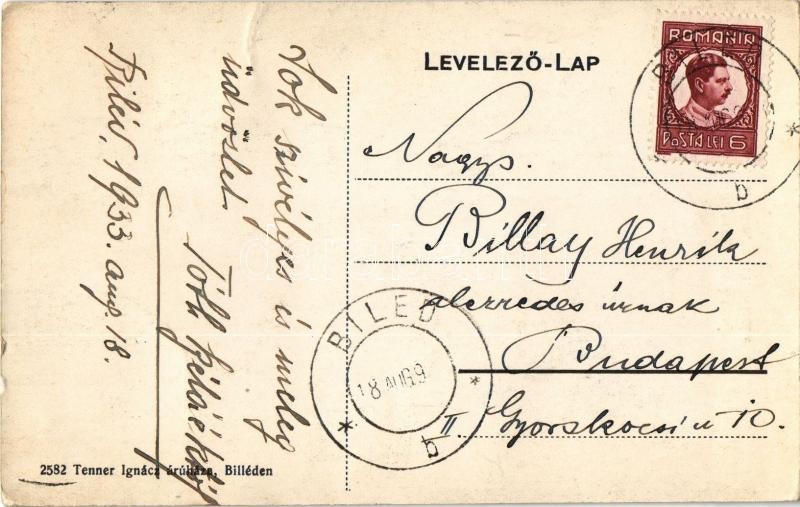 LEVELEZŐ-LAP
ROMANIA
POSTA LEI 6
b
Sok szívélyes és meleg
üdvözlet
Tóth Béláéktól
Biled, 1933. aug. 18.
Nagys.
Billay Henrik
alezredes úrnak
Budapest
II. Gyorskocsi u 10.
BILED
18 AUG 9
b
2582 Tenner Ignácz áruháza, Billéden